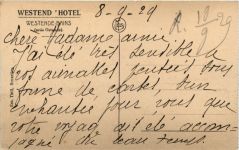 WESTEND HOTEL
WESTENDE-BAINS
8-9-29
R. 10/9 29
chère Madame amie.
J'ai été très sensible à
vos aimables pensées sous
forme de cartes, bien
enchantée pour vous que
votre voyage ait été accom-
pagné du beau temps.